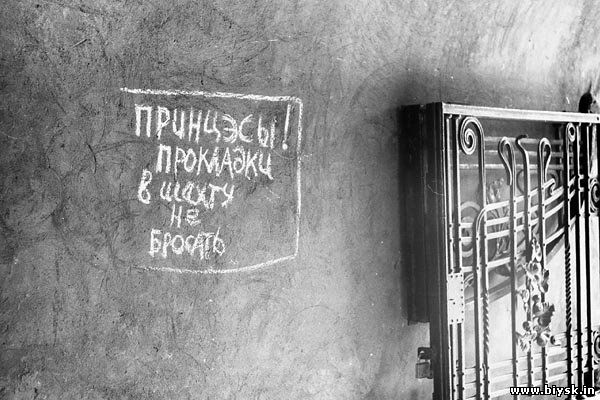 ПРИНЦЭСЫ!
ПРОКЛАДКИ
В ШАХТУ
НЕ
БРОСАТЬ
www.biysk.in